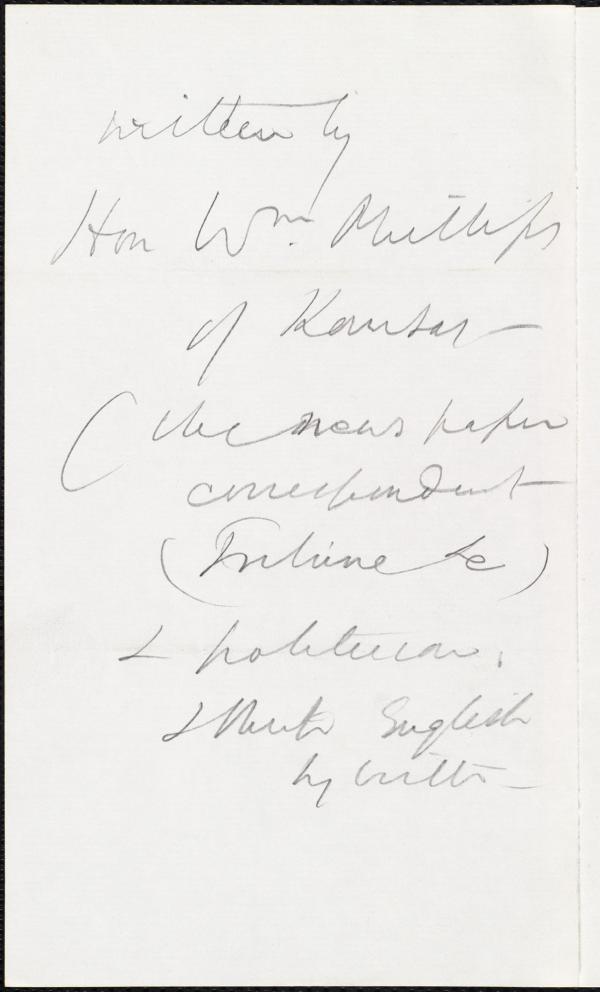 written by
Hon Wm. Phillips
of Kansas —
( the newspaper
correspondent —
(Tribune &c)
& politician,
& think English
by birth —